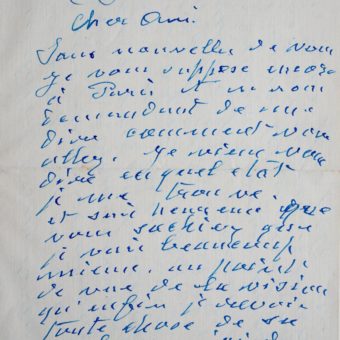 Cher Ami.
Sans nouvelles de vous
je vous suppose encore
à Paris et en vous
demandant de me
dire comment vous
allez. Je viens vous
dire en quel état
je me trouve.
et suis heureux que
vous sachiez que
je vais beaucoup
mieux. au point
de vue de la vision
qu'enfin je revois
toute chose de sa